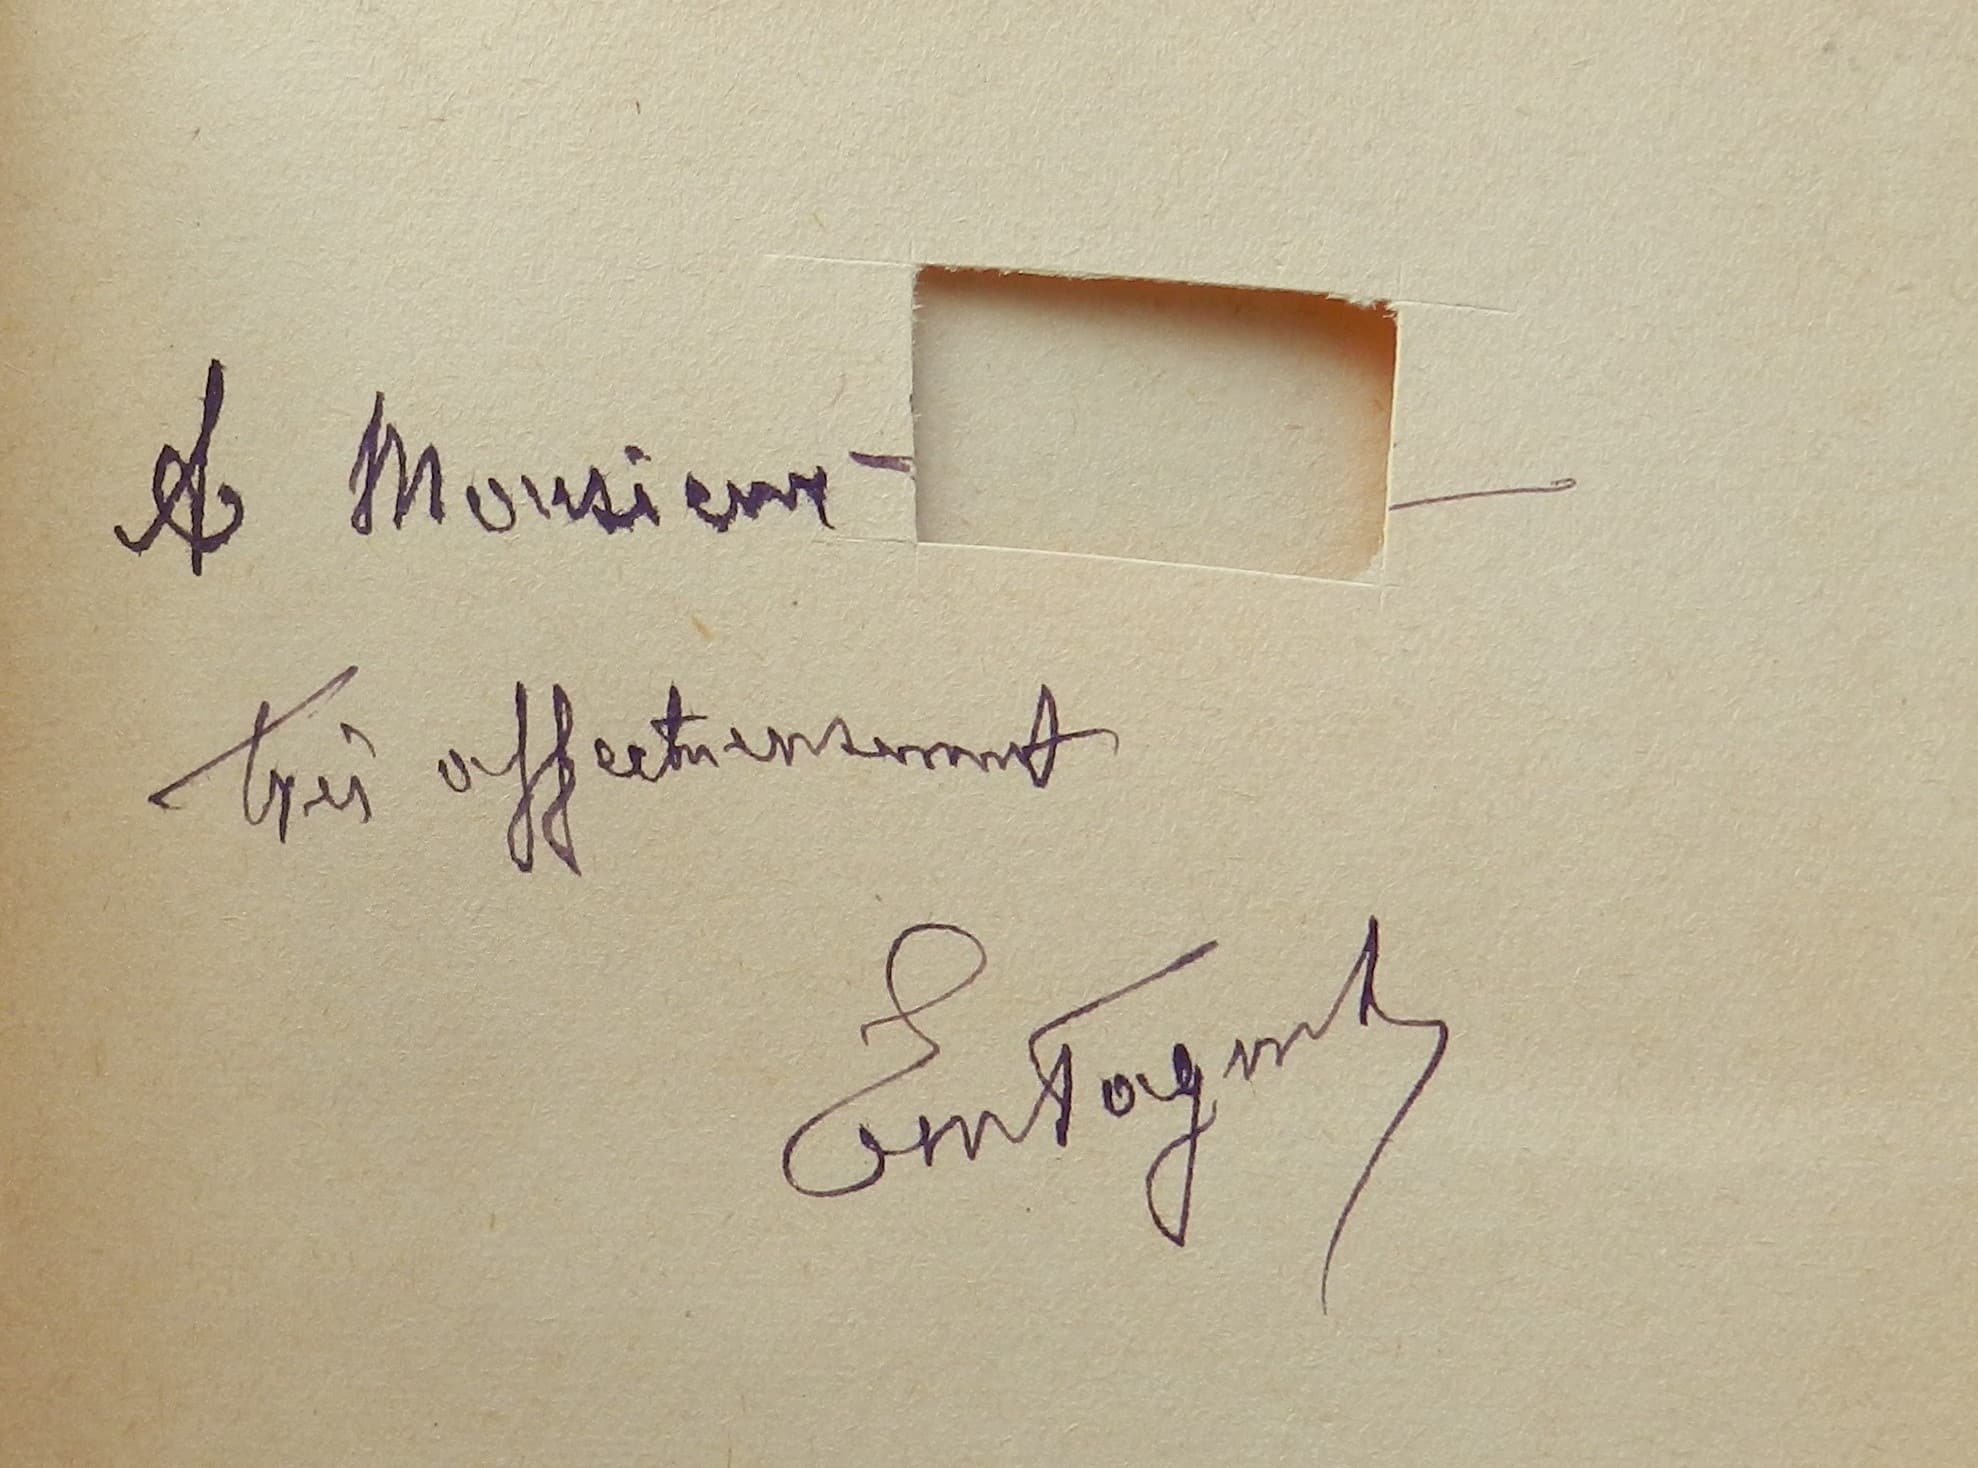 A Monsieur
très affectueusement
Em Faguet